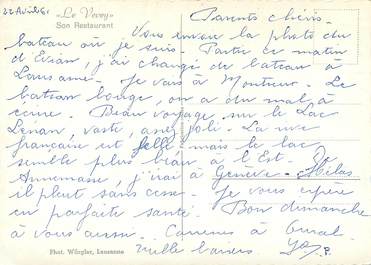 22 Août 61
«Le Vevey»
Son Restaurant
Parents chéris.
Vous envoie la photo du
bateau où je suis. Partie ce matin
d'Evian, j'ai changé de bateau à
Lausanne. Je vais à Montreux. Le
bateau bouge, on a du mal à
écrire. Beau voyage sur le Lac
Léman, vaste, assez joli. La rive
française est belle mais le lac
semble plus beau à l'Est.
Annemasse, j'irai à Genève. Hélas
il pleut sans cesse. Je vous espère
en parfaite santé. Bon dimanche
à vous aussi. Caresses à
mille baisers
Phot. Würgler, Lausanne